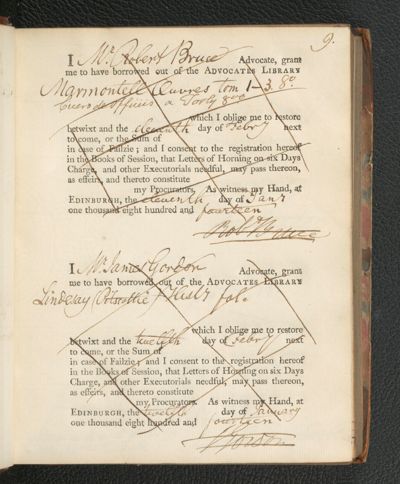 9.
I Mr Robert Bruce Advocate, grant
me to have borrowed out of the ADVOCATES LIBRARY
Marmontell Œuvres tom 1–3. 8o
Cicero de officiis a 8vo
which I oblige me to restore
betwixt and the eleventh day of Febry next
to come, or the Sum of
in case of Failzie; and I consent to the registration hereof
in the Books of Session, that Letters of Horning on six Days
Charge, and other Executorials needful, may pass thereon,
as effeirs, and thereto constitute
my Procurators. As witness my Hand, at
EDINBURGH, the eleventh day of Jany
one thousand eight hundred and fourteen
Robt Bruce
I Mr James Gordon Advocate, grant
me to have borrowed out of the ADVOCATES LIBRARY
Lindesay fol.
which I oblige me to restore
betwixt and the twelfth day of Febry next
to come, or the Sum of
in case of Failzie; and I consent to the registration hereof
in the Books of Session, that Letters of Horning on six Days
Charge, and other Executorials needful, may pass thereon,
as effeirs, and thereto constitute
my Procurators. As witness my Hand, at
EDINBURGH, the twelfth day of January
one thousand eight hundred and fourteen
Gordon